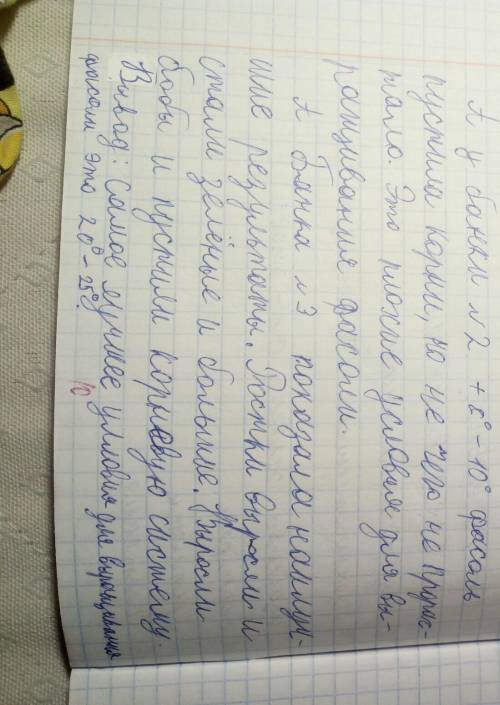 А у банки №2 +8°-10° фасоль
пустила корни, но не чего не прорас-
тало. Это плохие условия для вы-
ращивания фасоли.
А банка №3 показала наилуч-
шие результаты. Ростки выросли и
стали зелёные и большие. Выросли
бобы и пустили корневую систему.
Вывод: самое лучшее условия для выращивания
фасоли это 20°-25°.